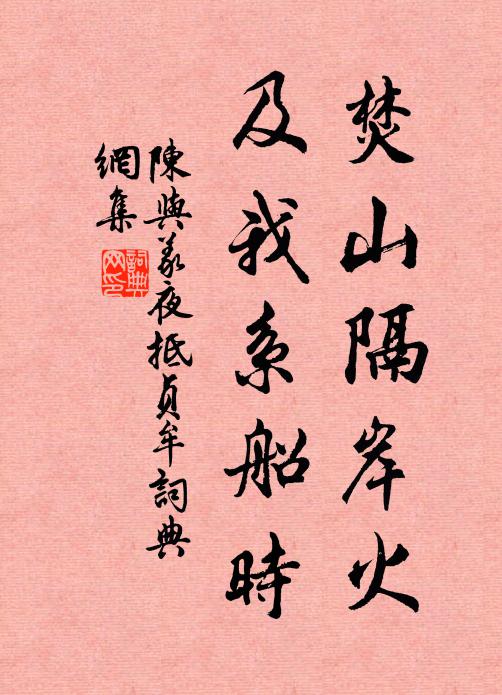 焚山隔岸火
及我系船時
陳與義夜抵貞牟詞典
網集
詞典
网印